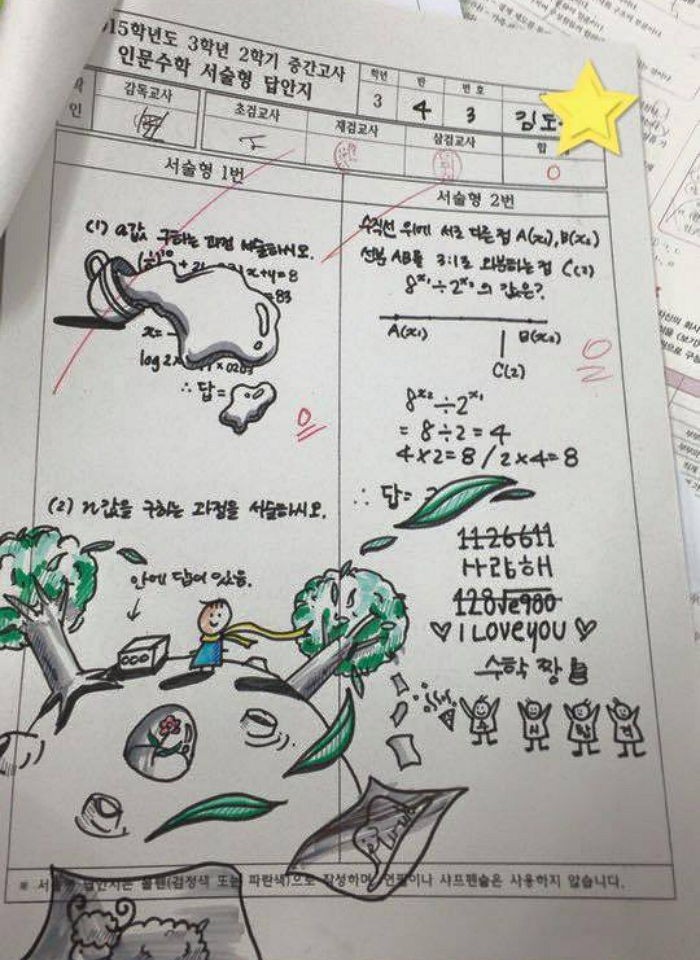 15학년도 3학년 2학기 중간고사
인문수학 서술형 답안지
학년 반 번호
3 4 3 김도
인
감독교사 초검교사 재검교사 삼검교사
0
서술형 1번
(1) a값 구하는 과정 서술하시오.
x+y=8
=83
x=
log 2x
∴ 답=
0
(2) n값을 구하는 과정을 서술하시오.
안에 답이 있음.
서술형 2번
수직선 위에 서로 다른 점 A(x₁), B(x₂)
선분 AB를 3:1로 외분하는 점 C(2)
8^x₁÷2^x₂의 값은?
A(x₁) B(x₂)
C(2)
0
8^x₂÷2^x₁
= 8÷2=4
4×2=8 / 2×4=8
∴ 답=
1126611
사랑해
128√e980
♡ I LOVE YOU ♡
수학 짱
※ 답안지은 볼펜(검정색 또는 파란색)으로 작성하며, 연필이나 샤프펜슬은 사용하지 않습니다.